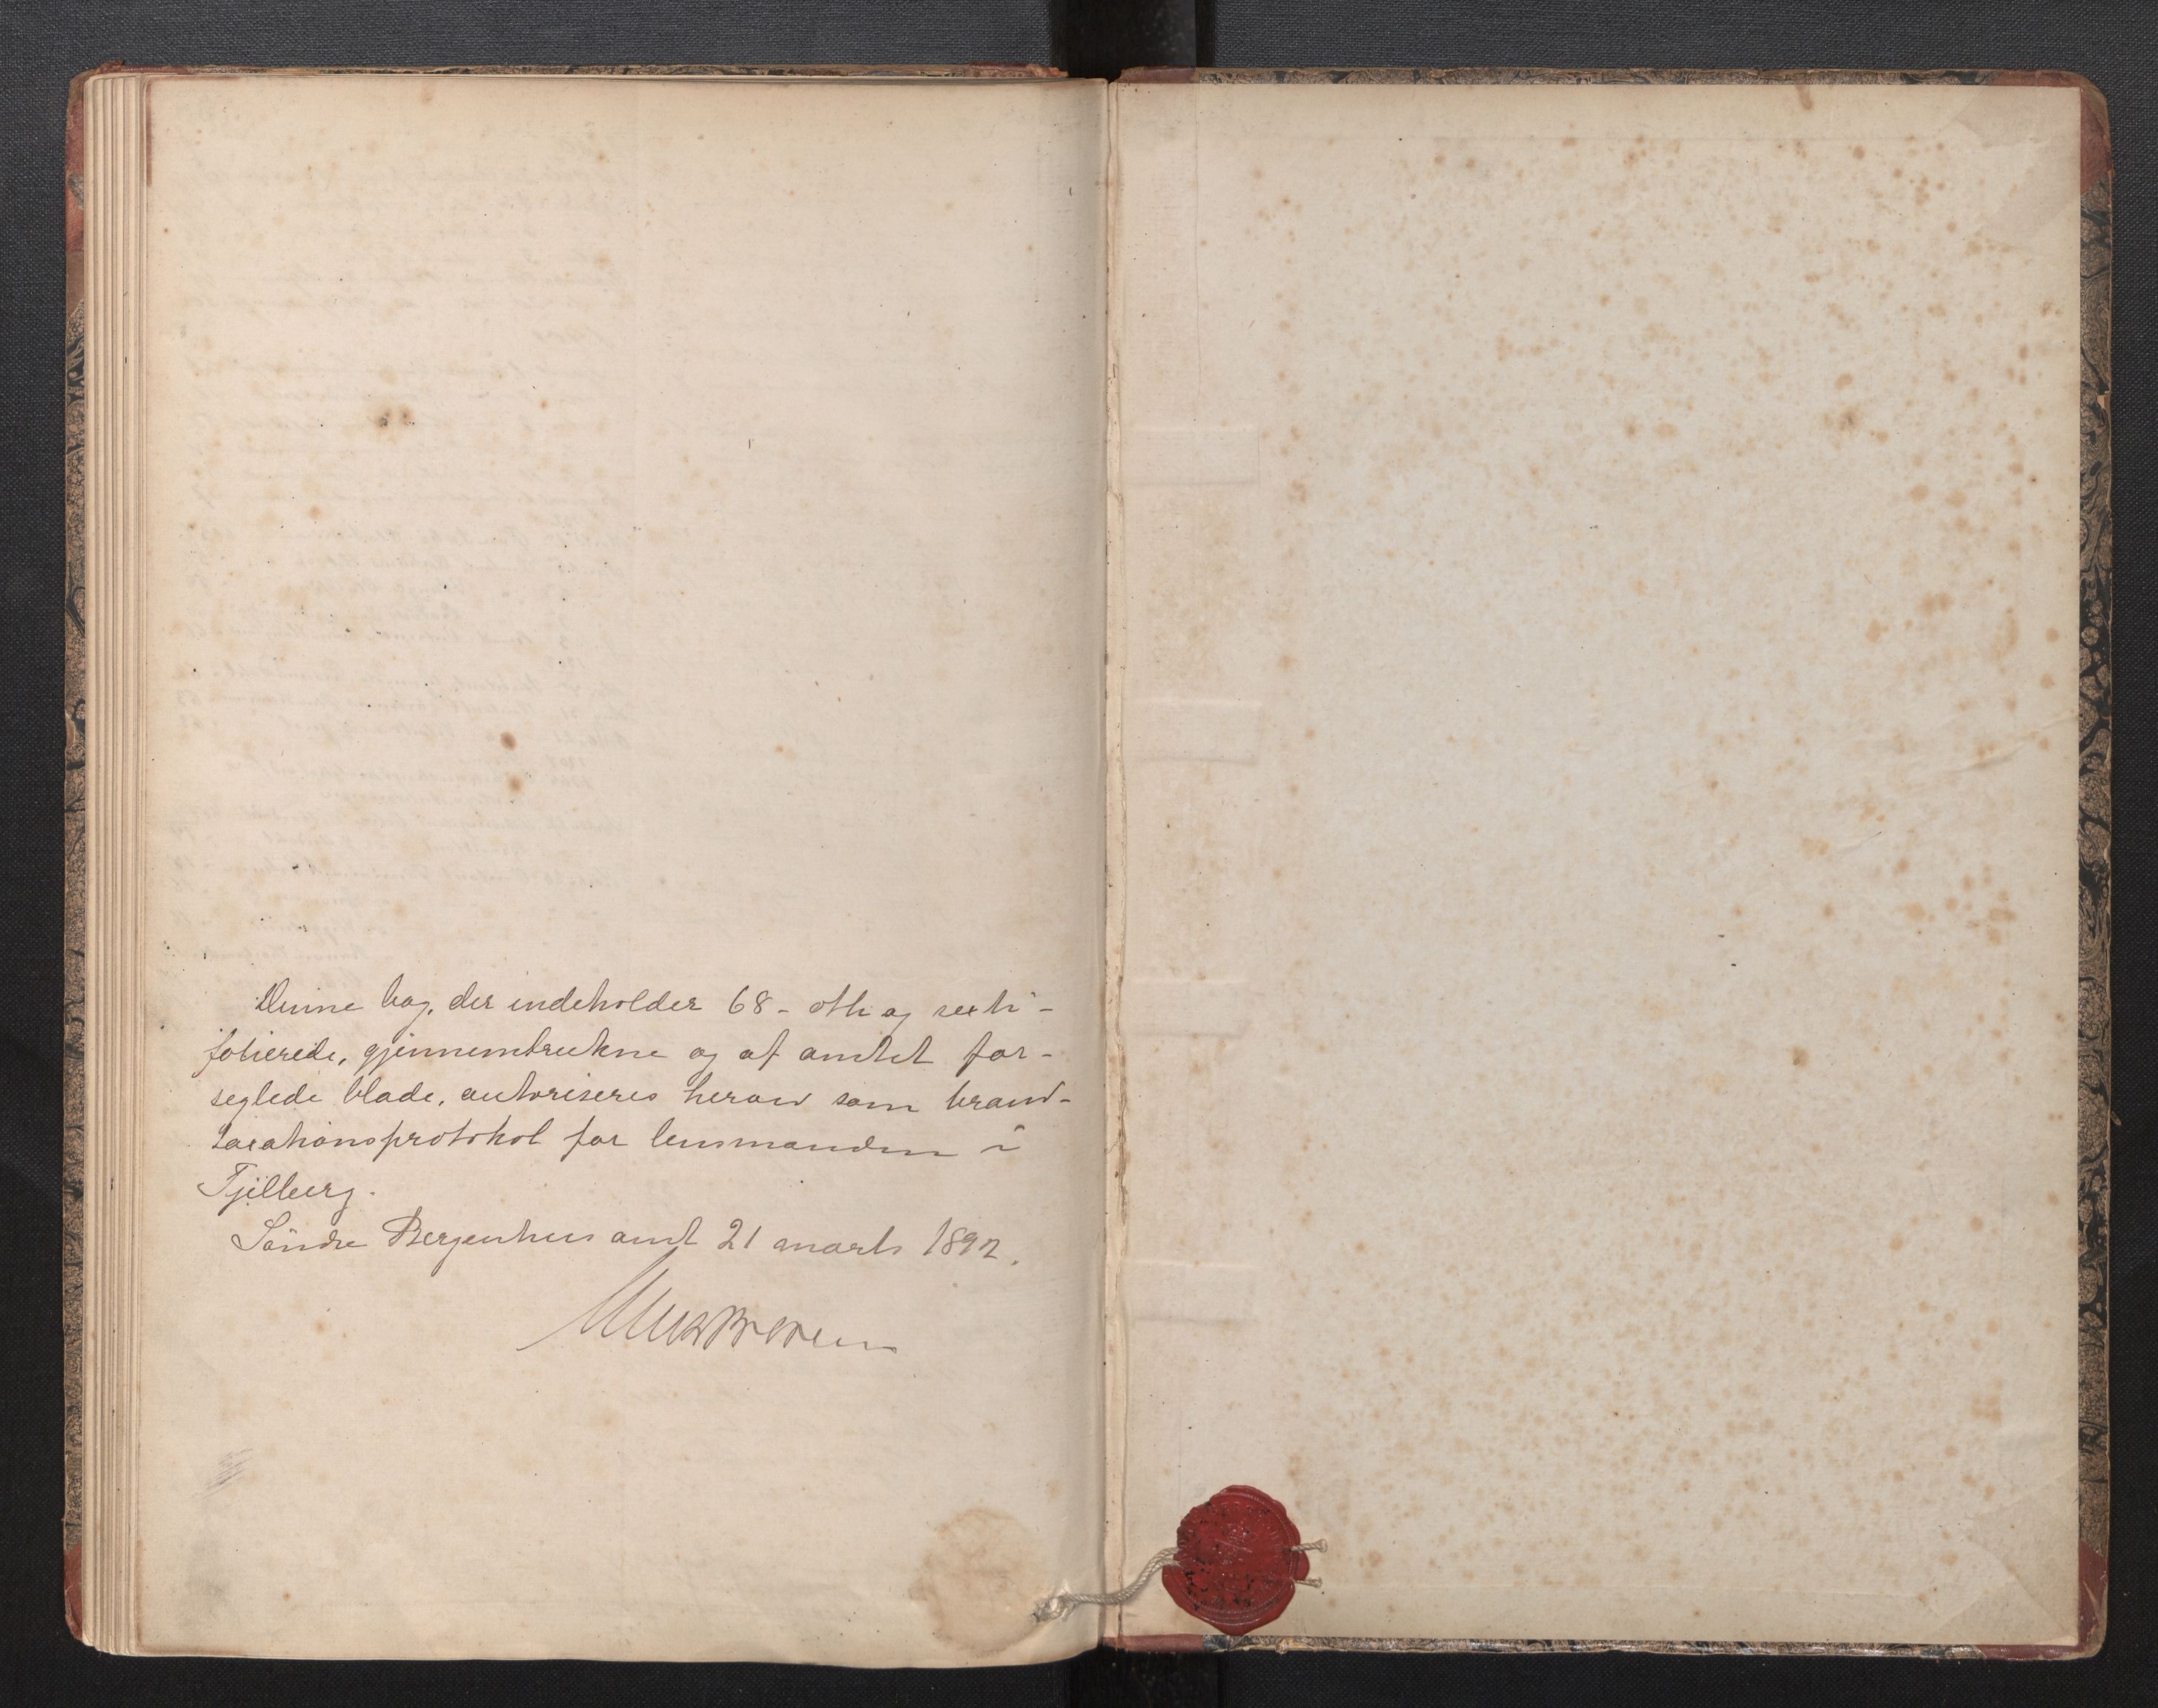 Denne bog, der indeholder 68 - otte og sexti -
folierede, gjennemtrukne og af amtet for-
seglede blade, autoriseres herved som brand-
taxationsprotokol for lensmanden i
Fjelberg.
Söndre Bergenhus amt 21 marts 1892.